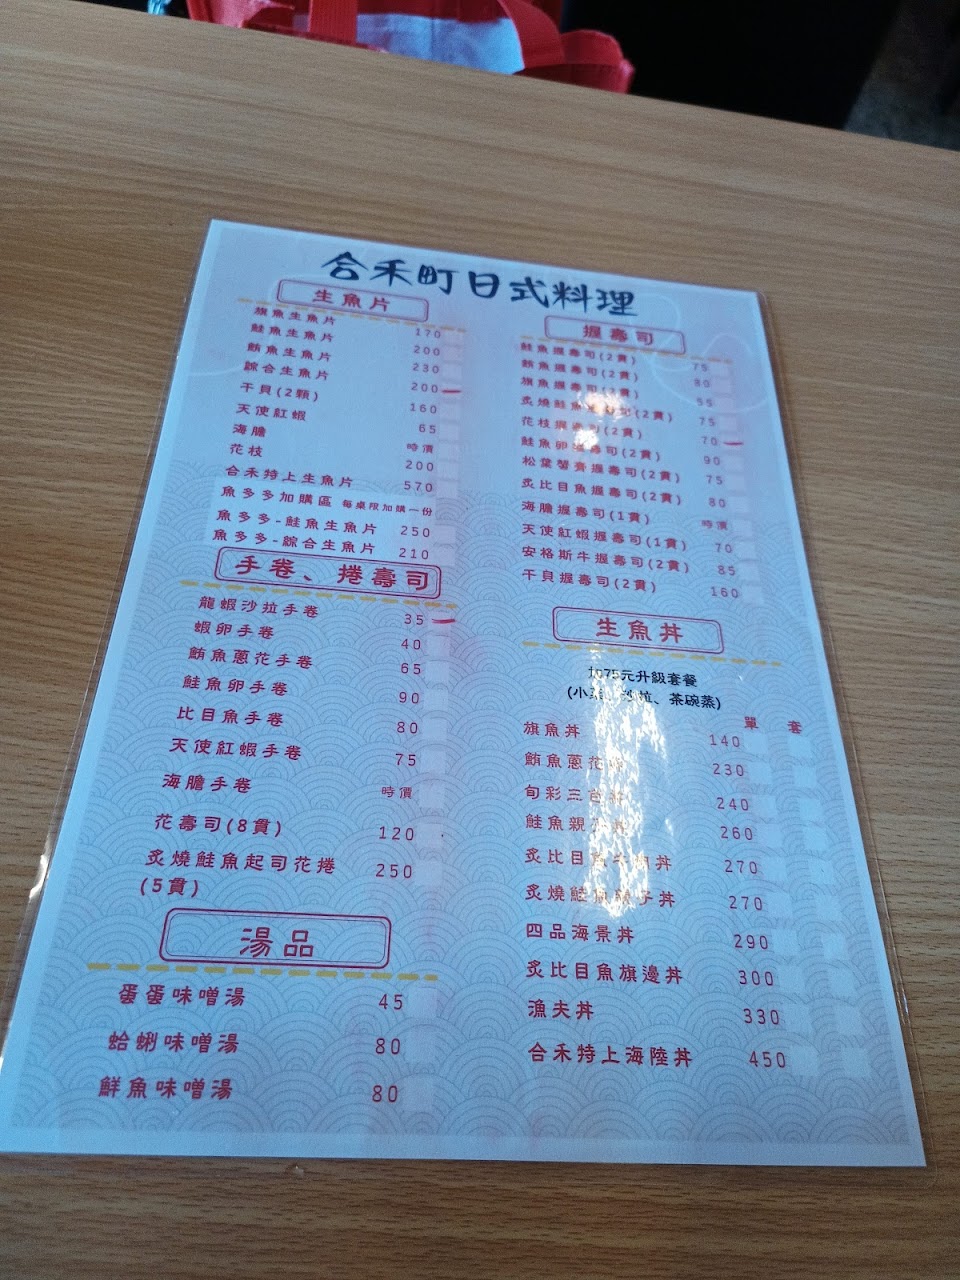 合禾町日式料理
生魚片
旗魚生魚片 170
鮭魚生魚片 200
鮪魚生魚片 230
綜合生魚片 200
干貝(2顆) 160
天使紅蝦 65
海膽 時價
花枝 200
合禾特上生魚片 570
魚多多加購區 每桌限加購一份
魚多多-鮭魚生魚片 250
魚多多-綜合生魚片 210
手卷、捲壽司
龍蝦沙拉手卷 35
蝦卵手卷 40
鮪魚蔥花手卷 65
鮭魚卵手卷 90
比目魚手卷 80
天使紅蝦手卷 75
海膽手卷 時價
花壽司(8貫) 120
炙燒鮭魚起司花捲 250
(5貫)
湯品
蛋蛋味噌湯 45
蛤蜊味噌湯 80
鮮魚味噌湯 80
握壽司
鮭魚握壽司(2貫) 75
鮪魚握壽司(2貫) 80
旗魚握壽司(2貫) 55
炙燒鮭魚握壽司(2貫) 75
花枝握壽司(2貫) 70
鮭魚卵握壽司(2貫) 90
松葉蟹膏握壽司(2貫) 75
炙比目魚握壽司(2貫) 80
海膽握壽司(1貫) 時價
天使紅蝦握壽司(1貫) 70
安格斯牛握壽司(2貫) 85
干貝握壽司(2貫) 160
生魚丼
加75元升級套餐
(小菜、沙拉、茶碗蒸)
單 套
旗魚丼 140
鮪魚蔥花丼 230
旬彩三色丼 240
鮭魚親子丼 260
炙比目魚 丼 270
炙燒鮭魚親子丼 270
四品海景丼 290
炙比目魚旗邊丼 300
漁夫丼 330
合禾特上海陸丼 450